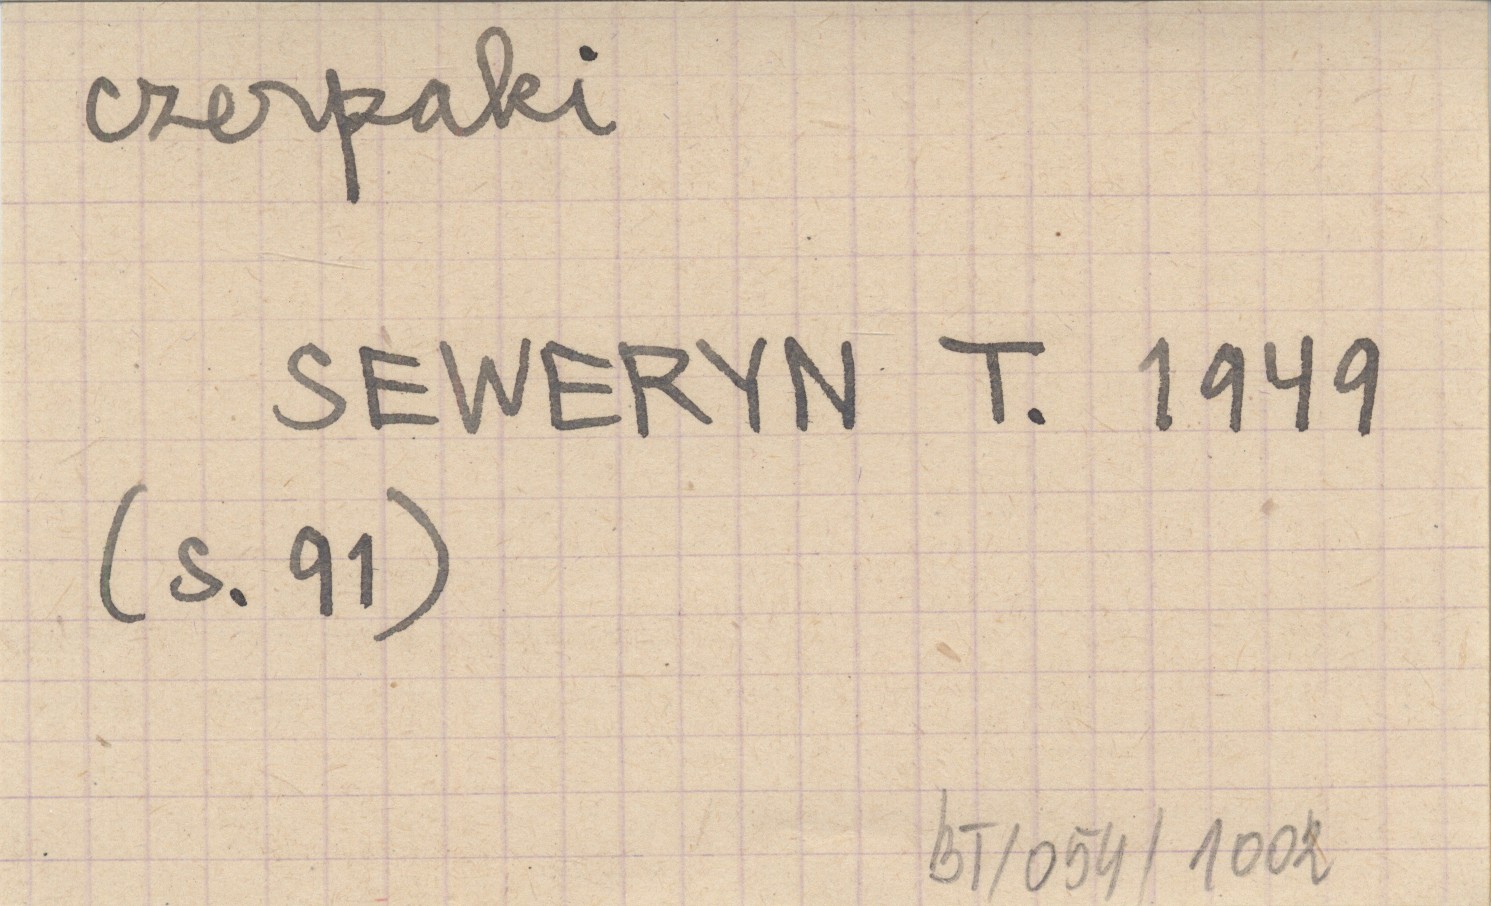 czerpaki
SEWERYN T. 1949
(s. 91)
BT/054/1002